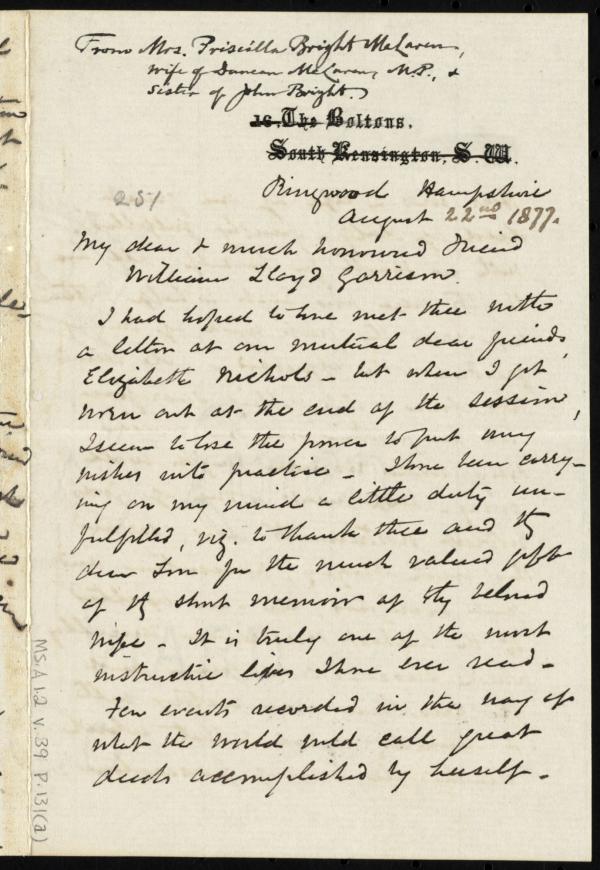 From Mrs. Priscilla Bright McLaren,
wife of Duncan McLaren, M.P., &
sister of John Bright.
16. The Boltons.
South Kensington, S.W.
Ringwood Hampshire
August 22nd 1877.
251
My dear & much honoured Friend
William Lloyd Garrison.
I had hoped to have met thee with
a letter at our mutual dear friends,
Elizabeth Nichols – but when I get
worn out at the end of the session,
I seem to lose the power to put my
wishes into practice – I have been carry-
ing on my mind a little duty un-
fulfilled, viz. to thank thee and thy
dear Son for the much valued gift
of thy short memoir of thy beloved
wife – It is truly one of the most
instructive lives I have ever read –
Few events recorded in the way of
what the world wld call great
deeds accomplished by herself –
MS.A.1.2 V.39 P.131(a)